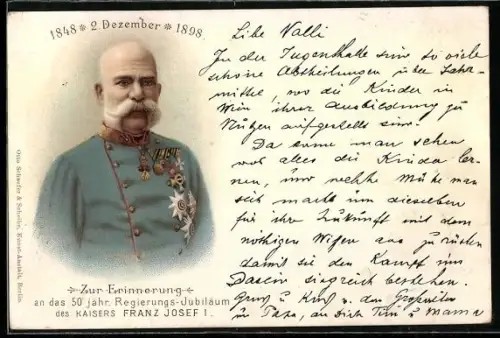 1848 * 2. Dezember * 1898.
Otto Schaefer & Scheibe, Kunst-Anstalt, Berlin
Zur Erinnerung
an das 50 jähr. Regierungs-Jubiläum
des KAISERS FRANZ JOSEF I.
Libe Valli
In der Jugendhalle sind so viele
schöne Abtheilungen über Lehr-
mittel, wo die Kinder in
Wien ihrer Ausbildung zu
Nutzen aufgestellt sind.
Da kann man sehen
was alles die Kinder ler-
nen, und welche Mühe man
sich macht um dieselben
für ihre Zukunft mit dem
nöthigen Wissen aus zu rüsten
damit sie den Kampf im
Dasein siegreich bestehen.
Gruß u Kuß v. den Großeltern
u Papa, an Dich u Mama